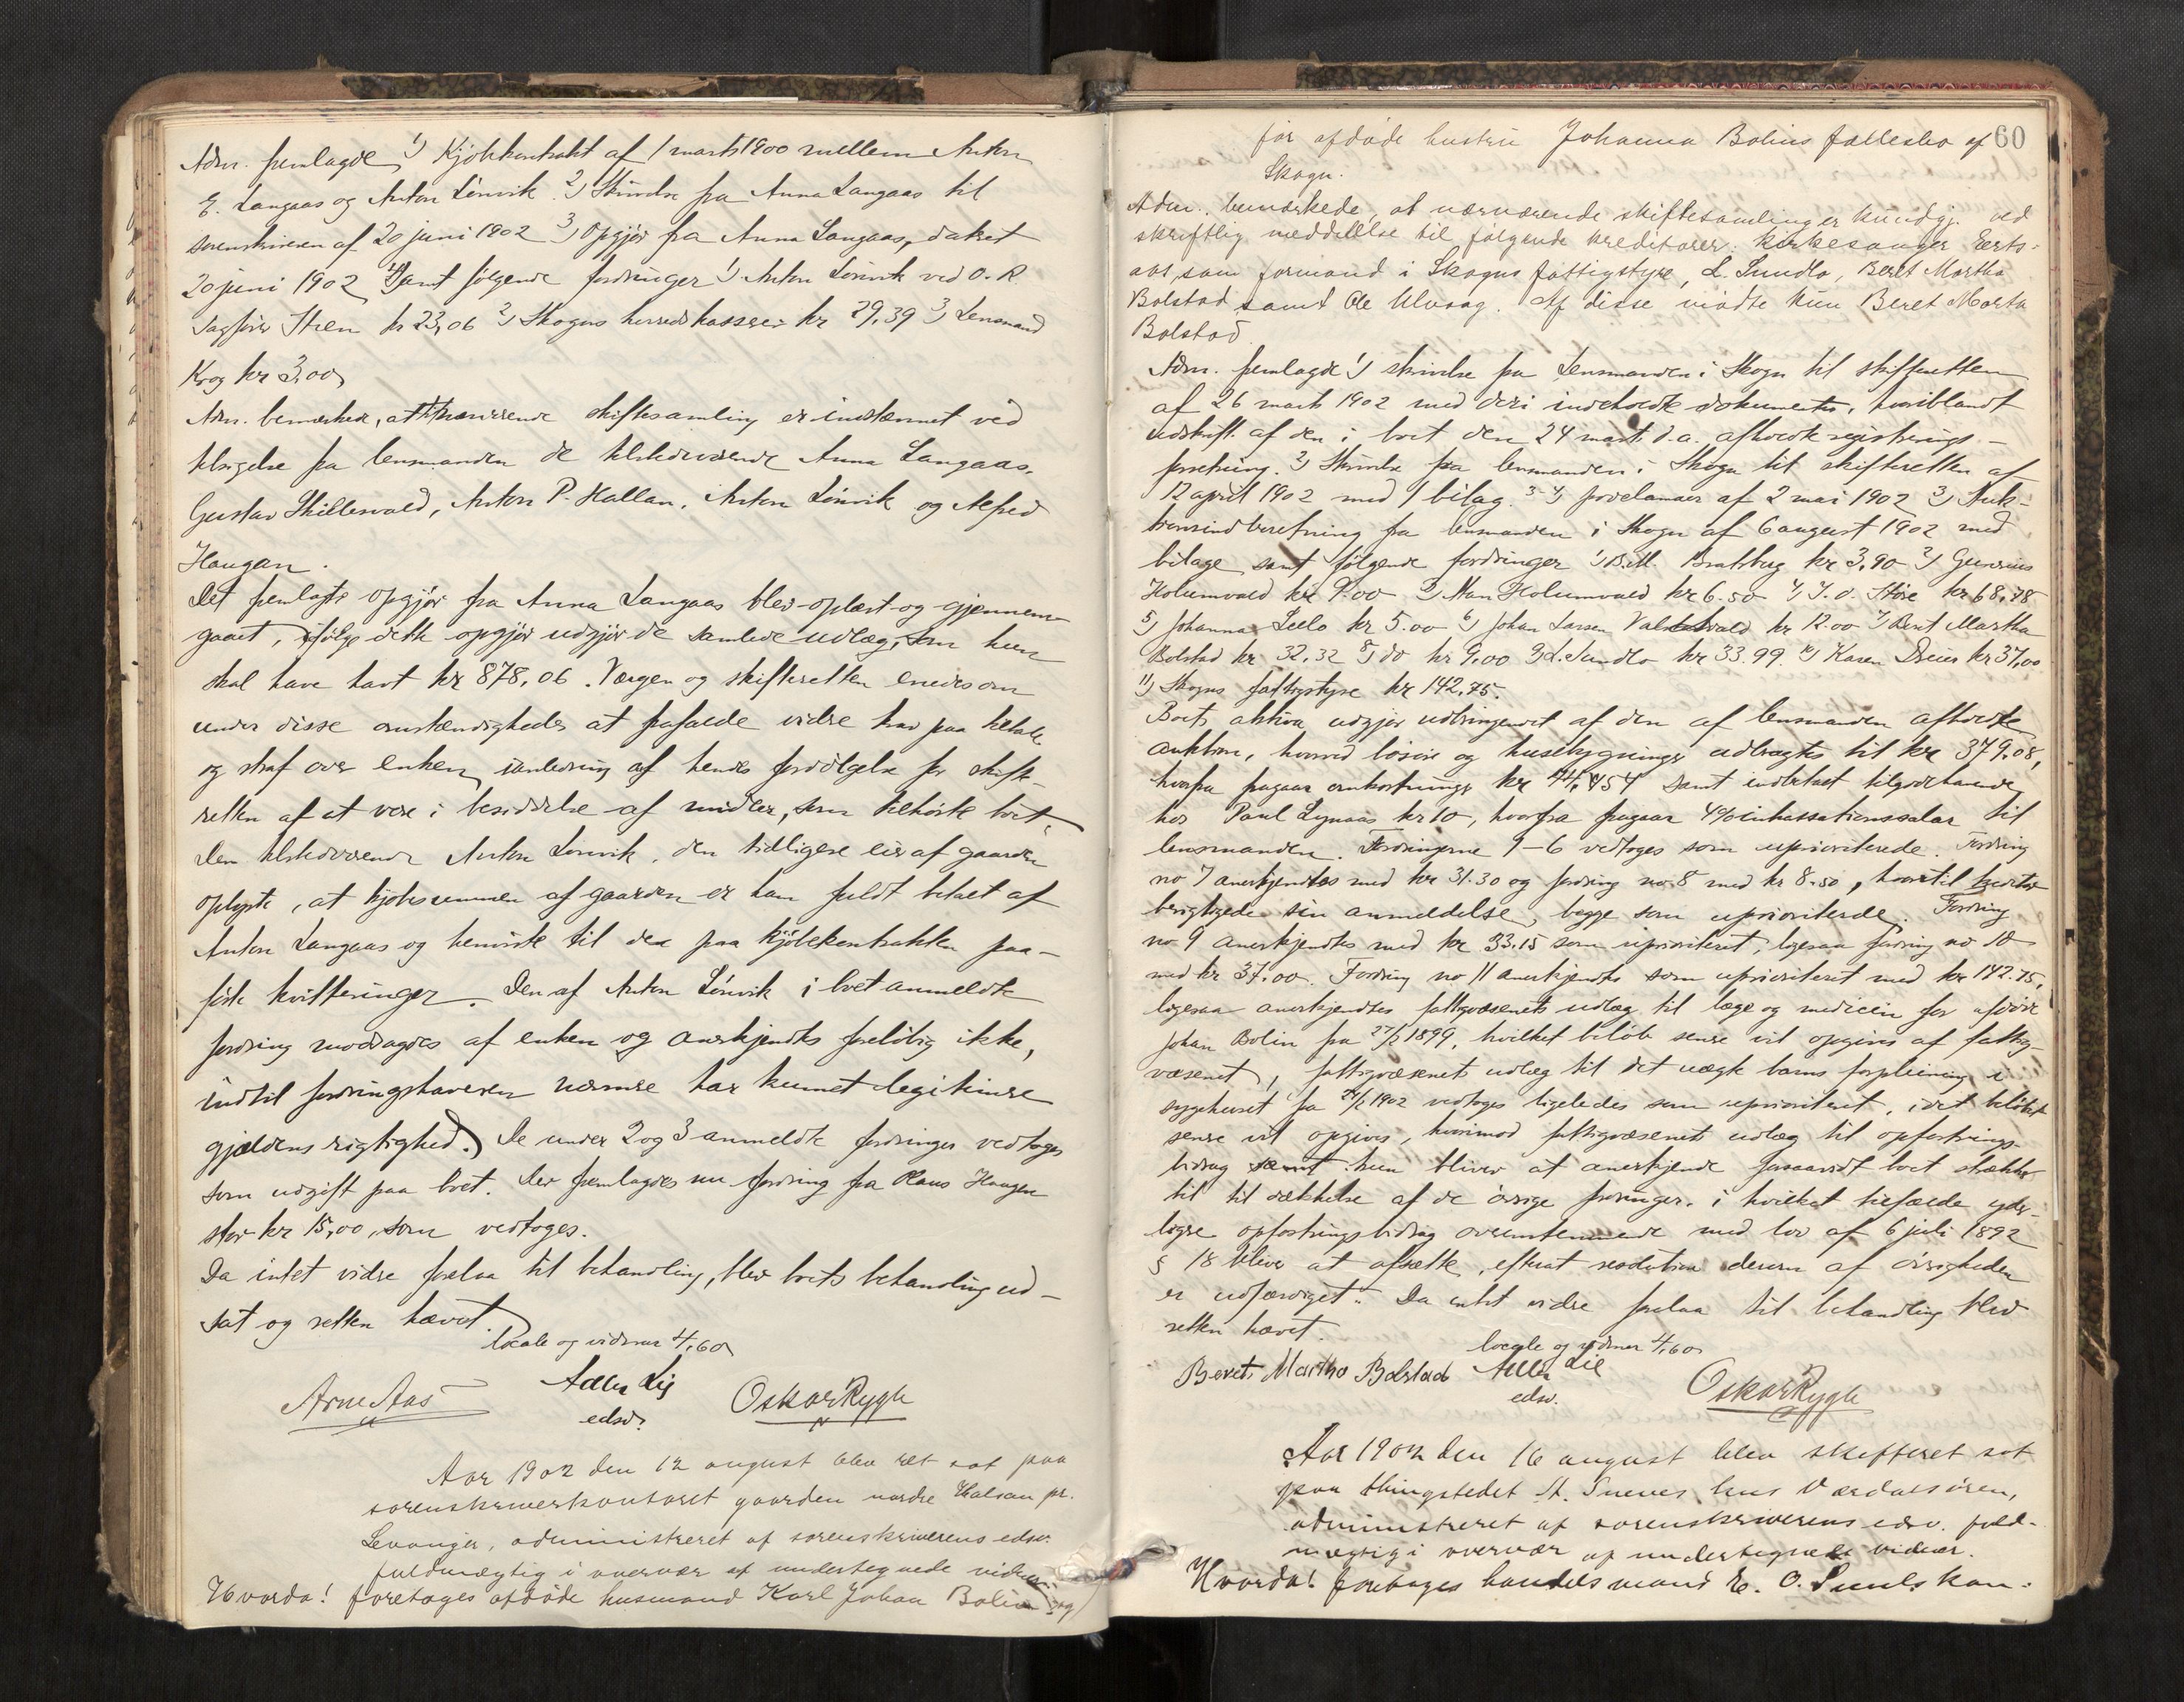 Adm. fremlagde 1) Kjøbekontrakt af 1 marts 1900 mellem Anton
E. Langaas og Anton Lønvik 2) Skrivelse fra Anna Langaas til
sorenskriveren af 20 juni 1902 3) Opgjør fra Anna Langaas, dateret
20 juni 1902 samt følgende fordringer 1) Anton Lønvik ved O. R.
Sagfører Strøm kr 23,06 2) Skogns herredskasserer kr 29,39 3) Lensmand
Krog kr 3,00,
Adm. bemærkede, at nærværende skiftesamling er indstævnet ved
tilsigelse fra lensmanden de tilstedeværende Anna Langaas,
Gustav Skillesvald, Anton P. Hallan, Anton Lönvik og Alfred
Haugan.
Det fremlagte opgjör fra Anna Langaas blev oplæst og gjennem-
gaaet, ifølge dette opgjør udgjør de samlede udlæg, som hun
skal have havt kr 878,06. Værgen og skifteretten enedes om
under disse omstændigheder at frafalde videre krav paa tiltale
og straf over enken i anledning af hendes fordölgelse for skifte-
retten af at være i besiddelse af midler, som tilhørte boet.
Den tilstedeværende Anton Lönvik, den tidligere eier af gaarden
oplyste, at kjøbesummen af gaarden er ham fuldt betalt af
Anton Langaas og henviste til de paa kjöbekontrakten paa-
førte kvitteringer. Den af Anton Lönvik i boet anmeldte
fordring modsagdes af enken og anerkjendtes foreløbig ikke,
indtil fordringshaveren nærmere har kunnet legitimere
gjældens rigtighed. De under 2 og 3 anmeldte fordringer vedtoges
som udgift paa boet. Der fremlagdes nu fordring fra Klaus Haugan
stor kr 15,00, som vedtoges.
Da intet videre forelaa til behandling, blev boets behandling ud-
sat og retten hævet.
locale og vidner 4,60
Arne Aas Adler Lie Oskar Rygh
edsv.
Aar 1902 den 12 august blev ret sat paa
sorenskriverkontoret gaarden nordre Halsan pr.
Levanger, administreret af sorenskriverens edsv.
fuldmægtig i overvær af undertegnede vidner.
Hvorda! foretoges afdøde husmand Karl Johan Bolin og
60
før afdøde hustru Johanna Bolins fællesbo af
Skogn.
Adm. bemærkede, at nærværende skiftesamling er kundgj. ved
skriftlig meddelelse til følgende kreditorer: kirkesanger Eerts-
aas som formand i Skogns fattigstyre, L. Sundlo, Beret Martha
Bolstad samt Ole Ulvaag. Af disse mødte kun Beret Marta
Bolstad.
Adm. fremlagde 1) skrivelse fra Lensmanden i Skogn til skifteretten
af 26 marts 1902 med deri indeholdte dokumenter, hvoriblandt
udskrift af den i boet den 24 marts d.a. afholdte registrerings-
forretning. 2) Skrivelse fra lensmanden i Skogn til skifteretten af
12 april 1902 med 1 bilag. 3-4) proclamaer af 2 mai 1902 3) Auk-
tionsindberetning fra lensmanden i Skogn af 6 august 1902 med
bilage samt følgende fordringer 1) B. M. Bratberg kr 3,90 2) Gunerius
Holumvald kr 9.00 3) Man Holumvald kr 6.50 4) J. O. Støre kr 68,78
5) Johanna Leelo kr 5.00 6) Johan Larsen Valstadvald kr 12.00 7) Beret Martha
Bolstad kr 32,32 8) do kr 9,00 9) L. Sundlo kr 33.99. 10) Karen Dreier kr 37,00
11) Skogns fattigstyre kr 142,75.
Boets aktiva udgjør udbringendet af den af lensmanden afholdte
auktion, hvorved løsøre og husebygninger udbragtes til kr 379,08,
hvorfra fragaar omkostninger kr 44,54 samt indbetalt tilgodehavende
hos Paul Lynaas kr 10, hvorfra fragaar 4% inkassationssalær til
lensmanden. Fordringerne 1-6 vedtoges som uprioriterede. Fordring
no 7 anerkjendtes med kr 31.30 og fordring no 8 med kr 8.50, hvortil kreditor
berigtigede sin anmeldelse, begge som uprioriterede. Fordring
no 9 anerkjendtes med kr 33.15 som uprioriteret, ligesaa fordring no 10
med kr 37.00. Fordring no 11 anerkjendtes som uprioriteret med kr 142.75,
ligesaa anerkjendtes fattigvæsenets udlæg til læge og medicin for afdøde
Johan Bolin fra 27/7 1899, hvilket beløb senere vil opgives af fattig-
væsenet, fattigvæsenets udlæg til det uægte barns forpleining i
sygehuset fra 24/2 1902 vedtoges ligeledes som uprioriteret, idet beløbet
senere vil opgives, hvorimod fattigvæsenets udlæg til opfostrings-
bidrag kun bliver at anerkjende forsaavidt boet strækker
til til dækkelse af de øvrige fordringer, i hvilket tilfælde yder-
ligere opfostringsbidrag overensstemmende med lov af 6 juli 1892
§ 18 bliver at afsætte, efterat resolution derom af øvrigheden
er udfærdiget. Da intet videre forelaa til behandling blev
retten hævet.
locale og vidner 4,60
Beret Martha Bolstad Adler Lie Oskar Rygh
edsv.
Aar 1902 den 16 august blev skifteret sat
paa thingstedet St. Sneves hus Værdalsøren,
administreret af sorenskriverens edsv. fuld-
mægtig i overvær af undertegnede vidner.
Hvorda! foretoges handelsmand E. O. Suuls kon-